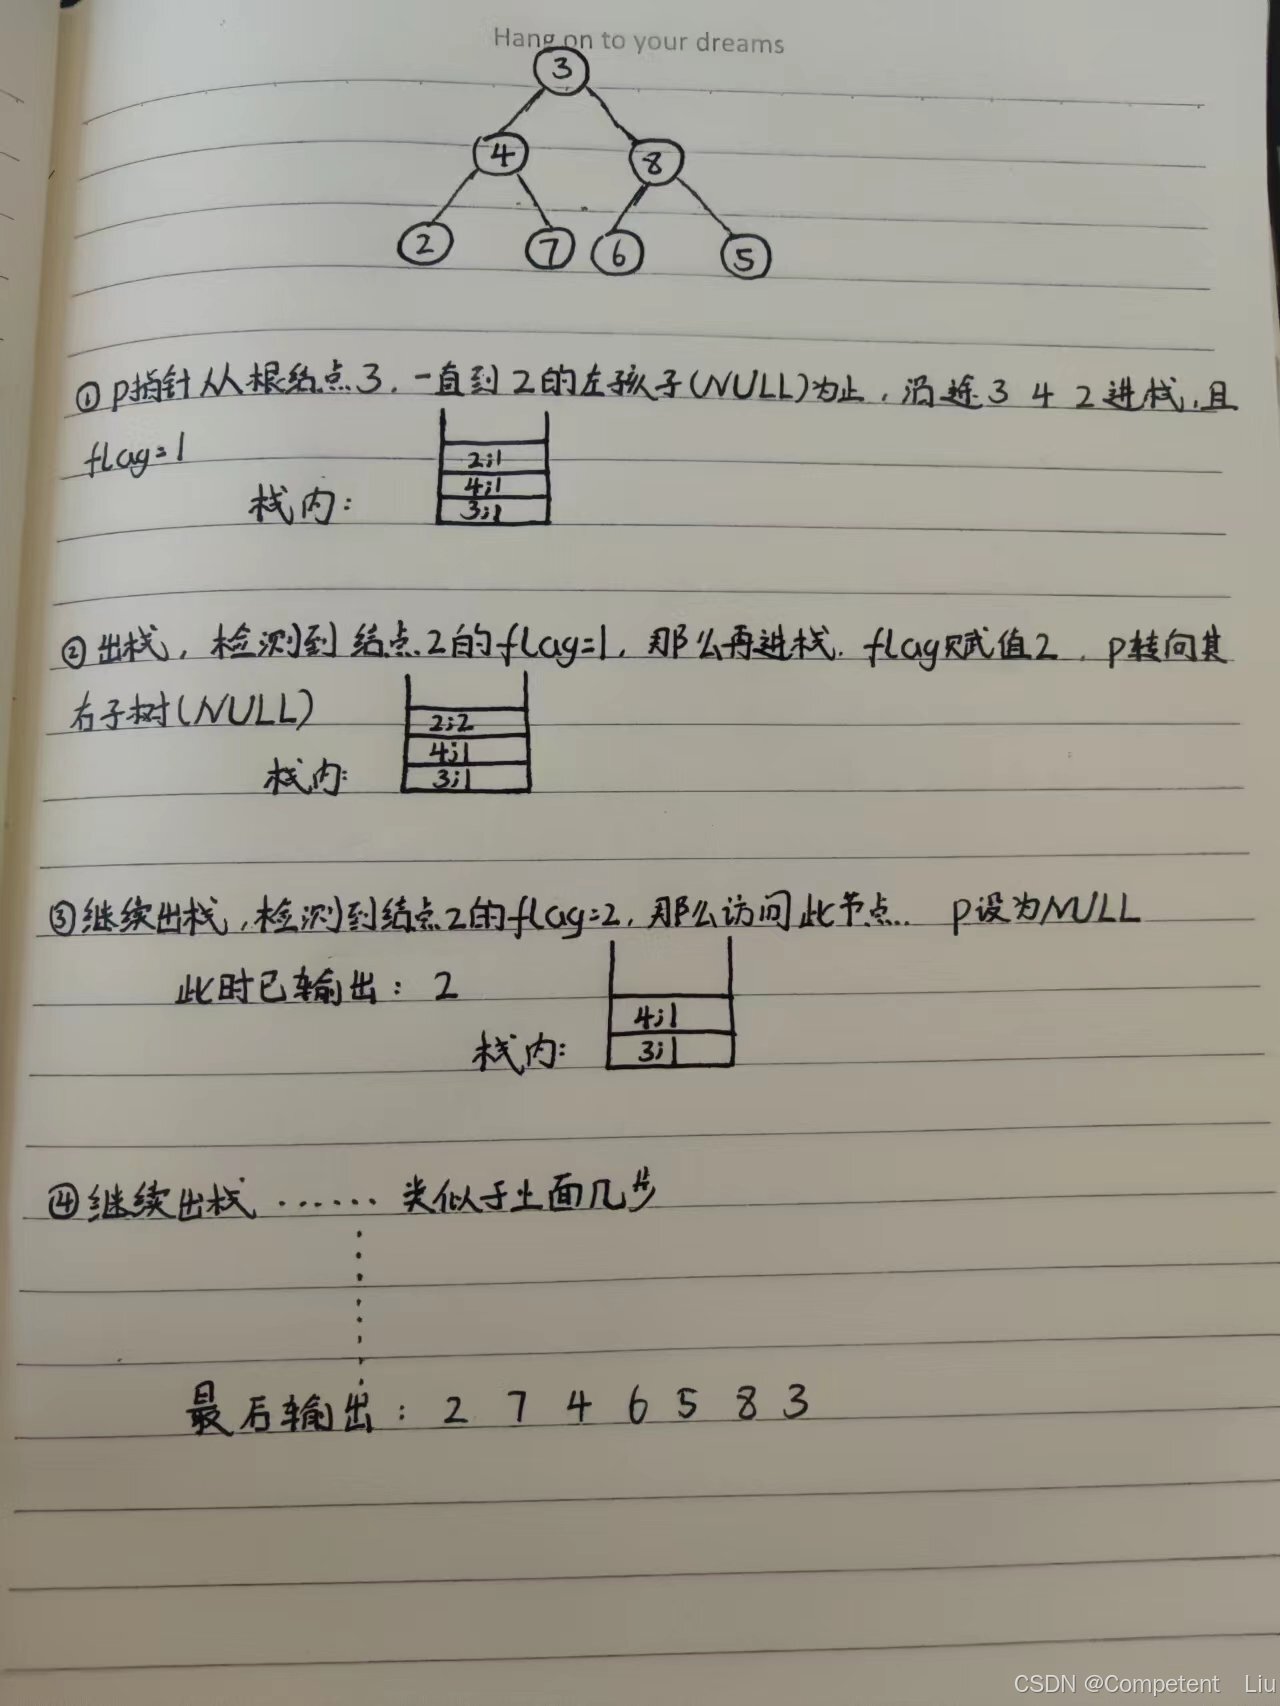 Hang on to your dreams
3
4 8
2 7 6 5
①p指针从根结点3,一直到2的左孩子(NULL)为止,沿途3 4 2进栈,且
flag=1
2;1
4;1
栈内: 3;1
②出栈,检测到结点2的flag=1,那么再进栈.flag赋值2,p转向其
右子树(NULL)
2;2
4;1
栈内: 3;1
③继续出栈,检测到结点2的flag=2,那么访问此节点. p设为NULL
此时已输出: 2
4;1
栈内: 3;1
④继续出栈 ...... 类似于上面几步
最后输出: 2 7 4 6 5 8 3
CSDN @Competent Liu